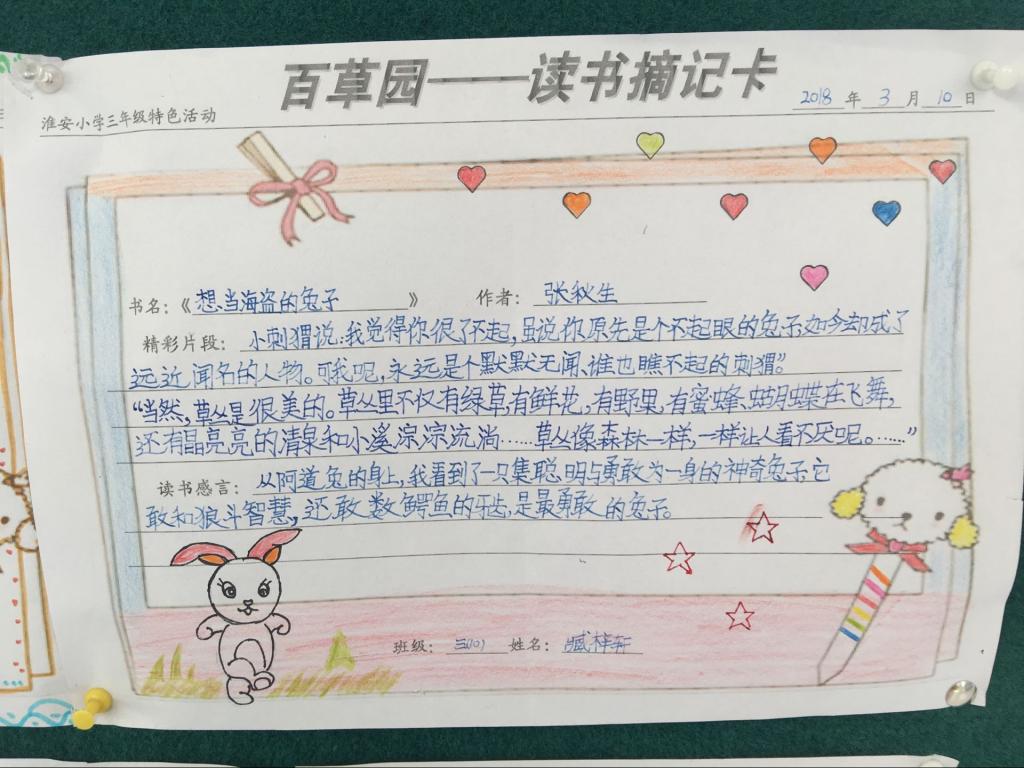 百草园——读书摘记卡
淮安小学三年级特色活动
2018 年 3 月 10 日
书名：《想当海盗的兔子》 作者：张秋生
精彩片段：小刺猬说：我觉得你很了不起，虽说你原先是个不起眼的兔子，如今却成了
远近闻名的人物。可我呢，永远是个默默无闻、谁也瞧不起的刺猬。”
“当然，草丛是很美的。草丛里不仅有绿草，有鲜花，有野果，有蜜蜂、蝴蝶在飞舞，
还有晶亮亮的清泉和小溪淙淙流淌……草丛像森林一样，一样让人看不厌呢。……”
读书感言：从阿道兔的身上，我看到了一只集聪明与勇敢为一身的神奇兔子，它
敢和狼斗智慧，还敢数鳄鱼的牙齿，是最勇敢的兔子。
班级：三(10) 姓名：臧梓轩